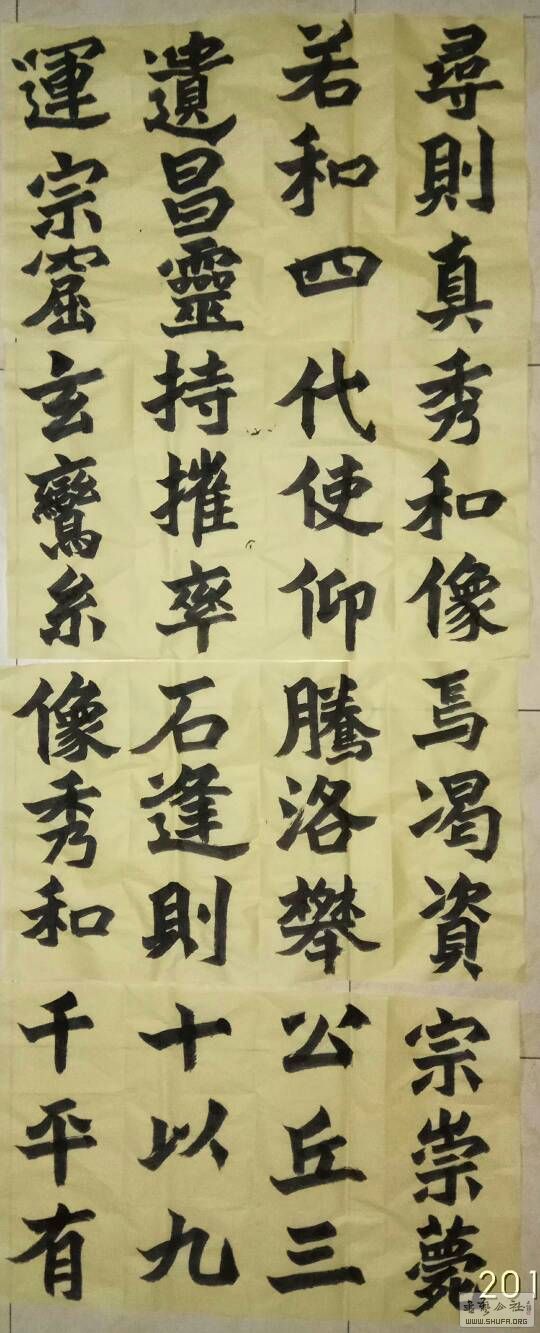 尋則真秀和像焉渴資宗崇薨
若和四代使仰騰洛攀公丘三
遺昌靈持摧率石逢則十以九
運宗窟玄鸞糸像秀和千平有
201
书艺公社
WWW.SHUFA.ORG